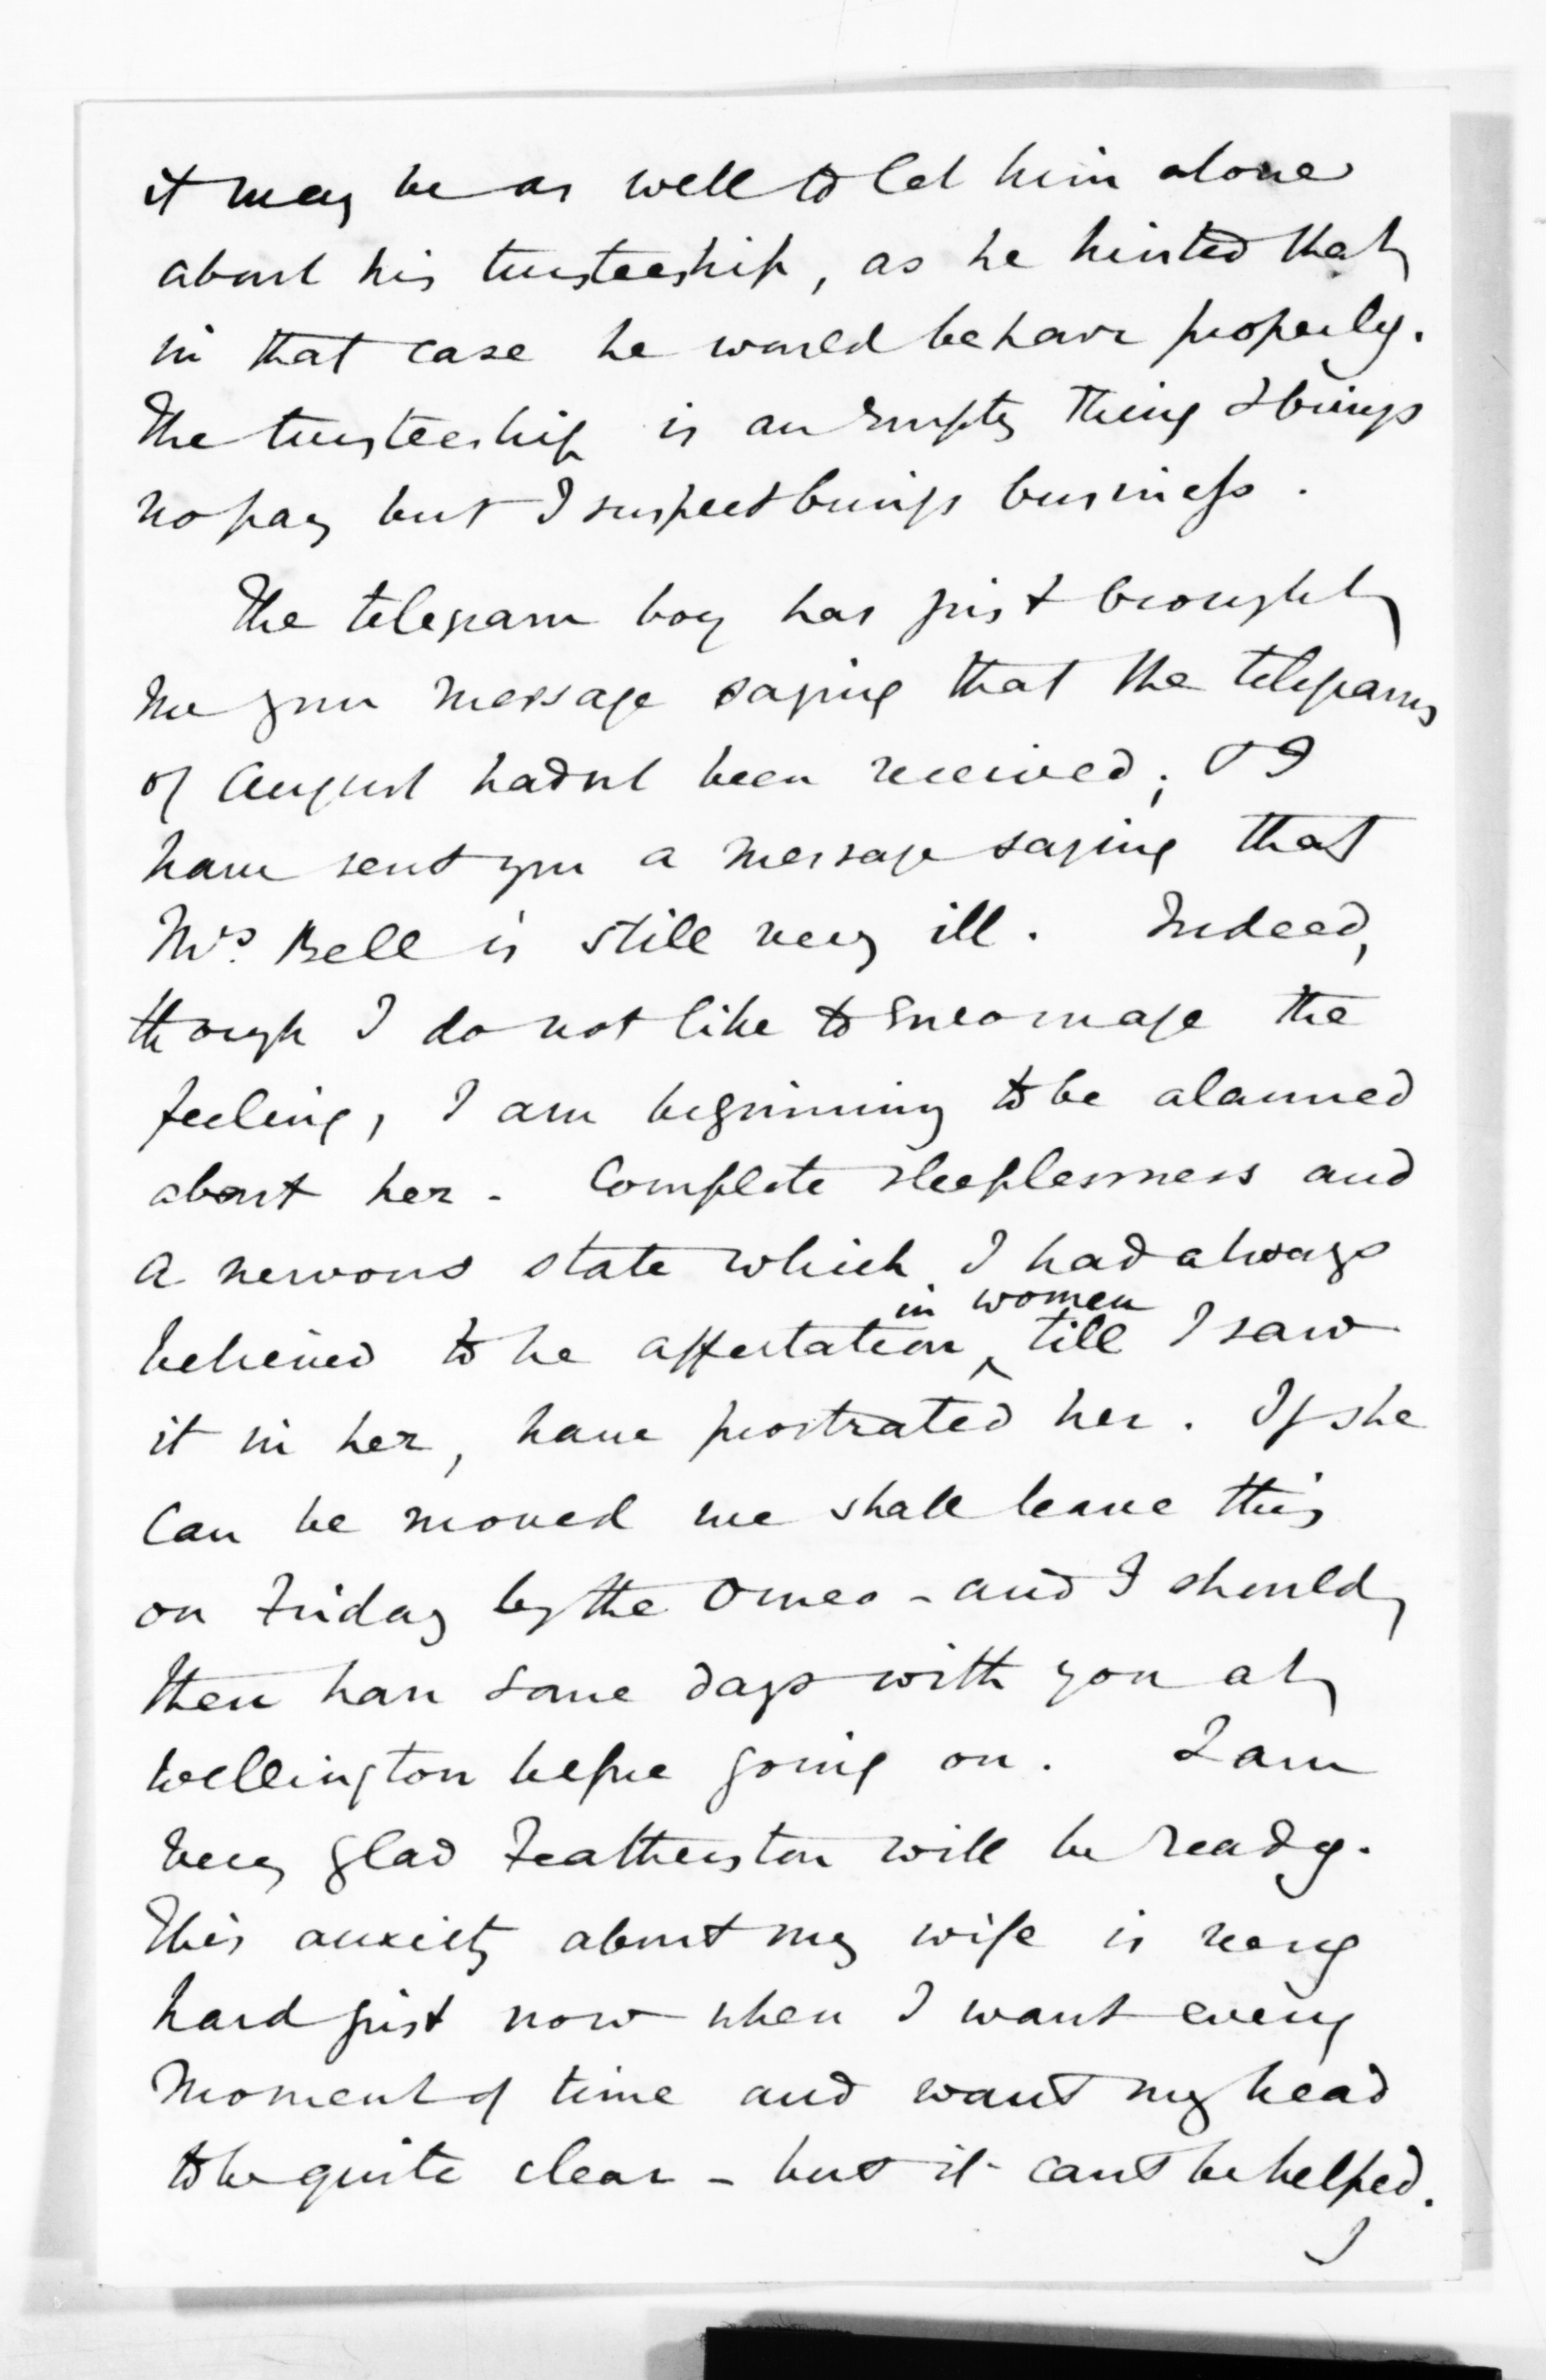 it may be as well to let him alone
about his trusteeship, as he hinted that
in that case he would behave properly.
The trusteeship is an empty thing & brings
no pay but I suspect brings business.
The telegram boy has just brought
me your message saying that the telegrams
of August hadnt been received; & I
have sent you a message saying that
Mrs. Bell is still very ill. Indeed,
though I do not like to encourage the
feeling, I am beginning to be alarmed
about her. Complete sleeplessness and
a nervous state which I had always
believed to be affectation in women till I saw
it in her, have prostrated her. If she
can be moved we shall leave this
on Friday by the Omeo - and I should
then have some days with you at
Wellington before going on. I am
very glad Featherston will be ready.
This anxiety about my wife is very
hard just now when I want every
moment of time and want my head
to be quite clear - but it cant be helped.
I